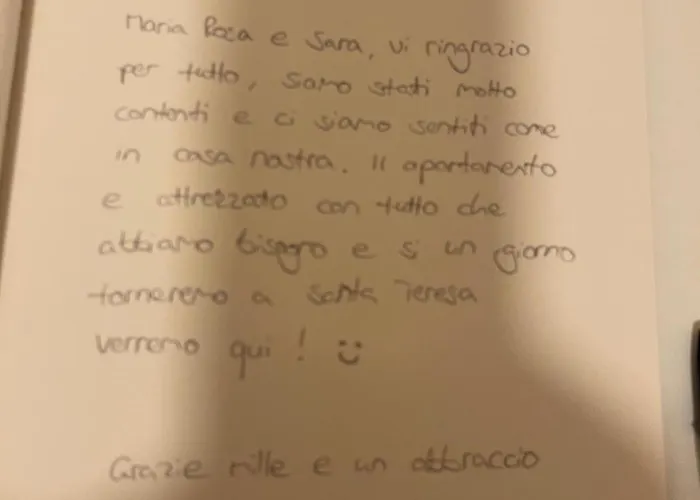 Maria Roca e Sara, vi ringrazio
per tutto, siamo stati molto
contenti e ci siamo sentiti come
in casa nastra. Il apartamento
e attrezzato con tutto che
abbiamo bisogno e si un giorno
torneremo a santa Teresa
verremo qui! :)
Grazie mille e un abbraccio